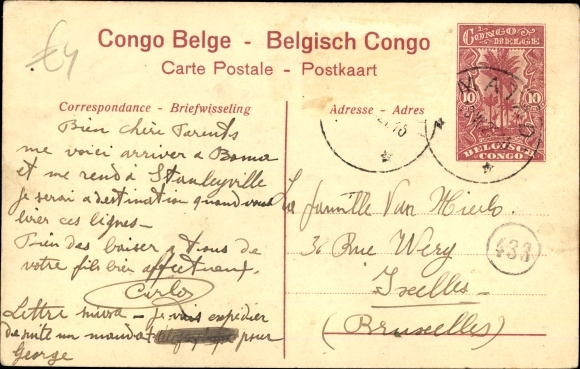 £4
Congo Belge - Belgisch Congo
Carte Postale - Postkaart
CONGO BELGE
10 10
BELGISCH CONGO
MATADI
Correspondance - Briefwisseling
Adresse - Adres
Bien chère Parents
me voici arriver a Boma
et me rend à Stanleyville
je serai a destination quand vous
lirez ces lignes -
Bien des baiser a tous de
votre fils bien affectueux,
Carlo
Lettre suivra - Je vais expédier
de suite un mandat pour
George
La famille Van Mierlo.
36 Rue Wery
Ixelles -
(Bruxelles)
433